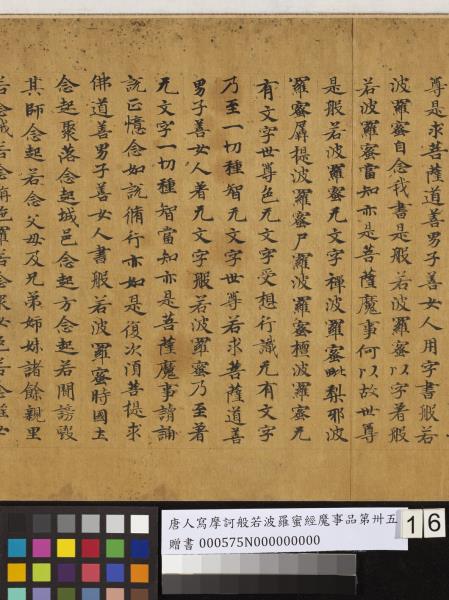 尊是求菩薩道善男子善女人用字書般若
波羅蜜自念我書是般若波羅蜜以字著般
若波羅蜜當知亦是菩薩魔事何以故世尊
是般若波羅蜜无文字禪波羅蜜毗梨耶波
羅蜜羼提波羅蜜尸羅波羅蜜檀波羅蜜无
有文字世尊色无文字受想行識无有文字
乃至一切種智无文字世尊若求菩薩道善
男子善女人著无文字般若波羅蜜乃至著
无文字一切種智當知亦是菩薩魔事請誦
說正憶念如說脩行亦如是復次須菩提求
佛道善男子善女人書般若波羅蜜時國土
念起聚落念起城邑念起方念起若聞謗毀
其師念起若念父母及兄弟姊妹諸餘親里
唐人寫摩訶般若波羅蜜經魔事品第卅五
贈書 000575N000000000
16